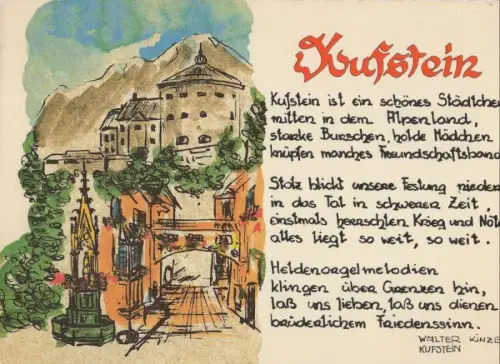 Kufstein
Kufstein ist ein schönes Städtchen
mitten in dem Alpenland,
starke Burschen, holde Mädchen
knüpfen manches Freundschaftsband
Stolz blickt unsere Festung nieder
in das Tal in schwerer Zeit,
einstmals herrschten Krieg und Not
alles liegt so weit, so weit.
Heldenorgelmelodien
klingen über Grenzen hin,
laß uns lieben, laß uns dienen
brüderlichem Friedenssinn.
WALTER KINZE
KUFSTEIN